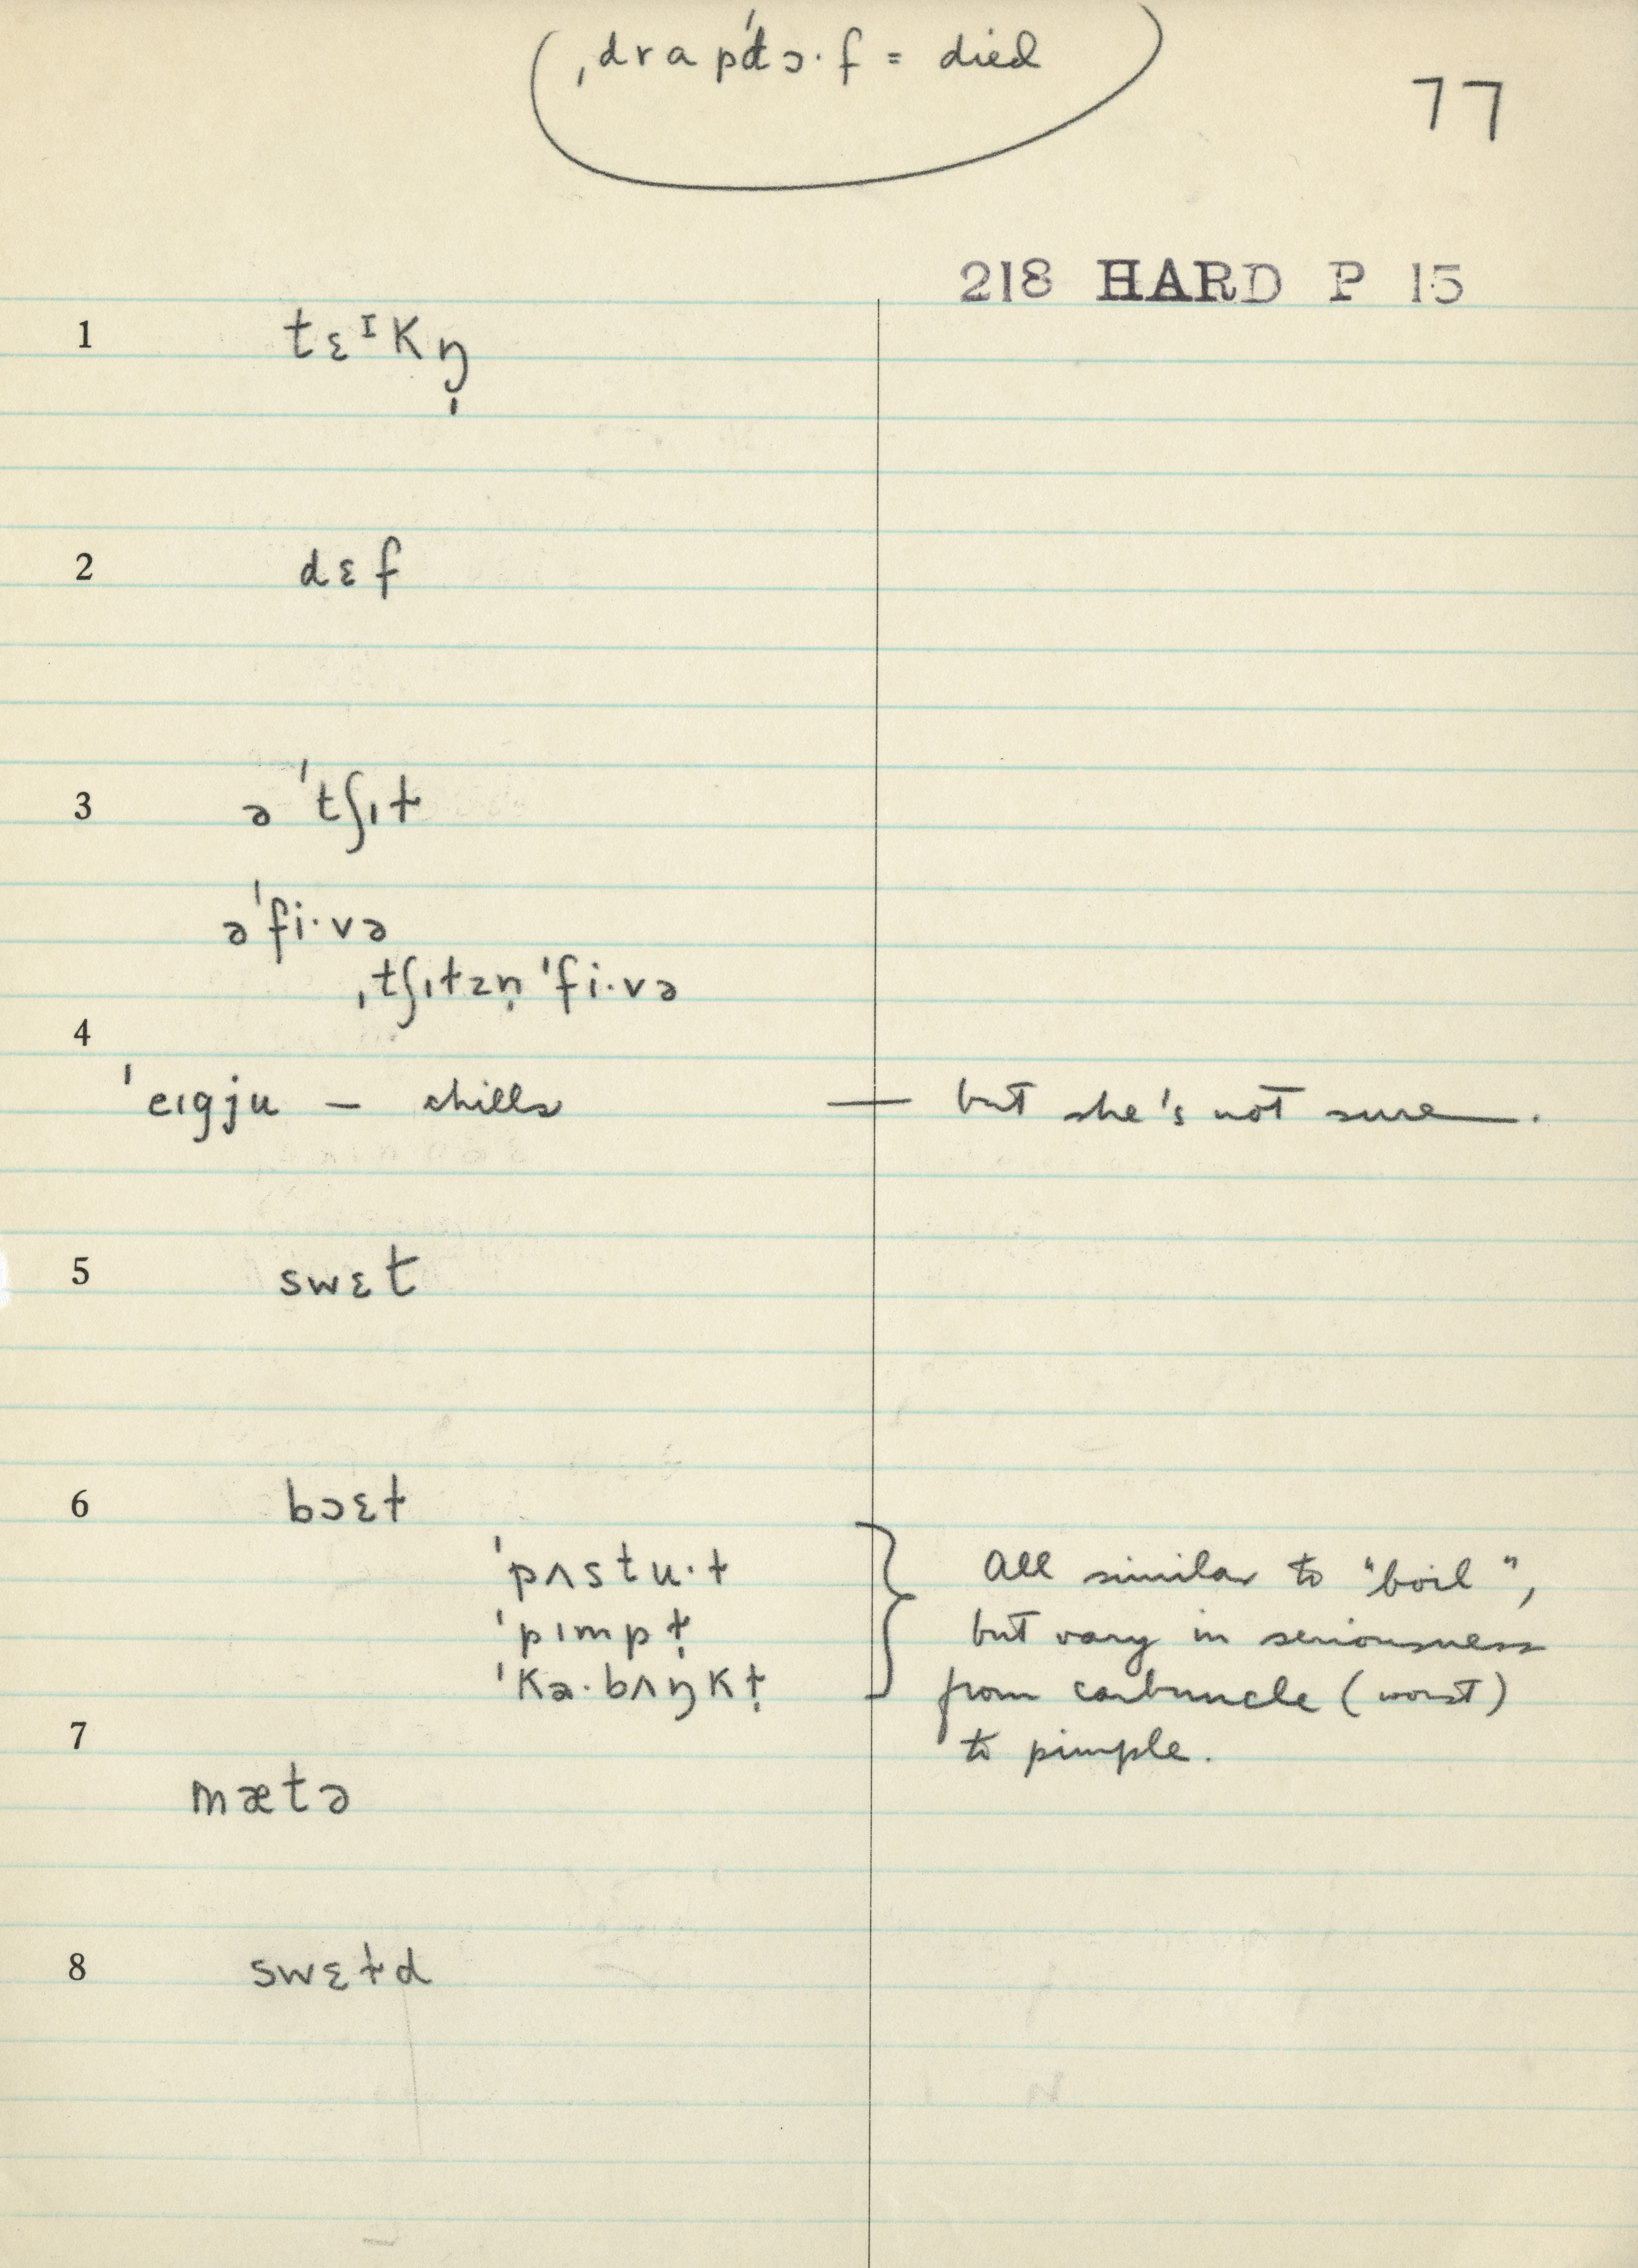 (ˌdrapˈtɔ·f = died)
77
218 HARD P 15
1 tɛᶦkŋ̩
2 dɛf
3 ə ˈtʃɪɫ
əˈfi·və
ˌtʃɪɫzn̩ ˈfi·və
4
ˈeɪgju — chills — but she's not sure.
5 swɛt
6 bɔɛɫ
ˈpʌstu·ɫ } All similar to "boil",
ˈpɪmpɫ̩ but vary in seriousness
ˈkɑ·bʌŋkɫ̩ from carbuncle (worst)
7 to pimple.
mætə
8 swɛɫd